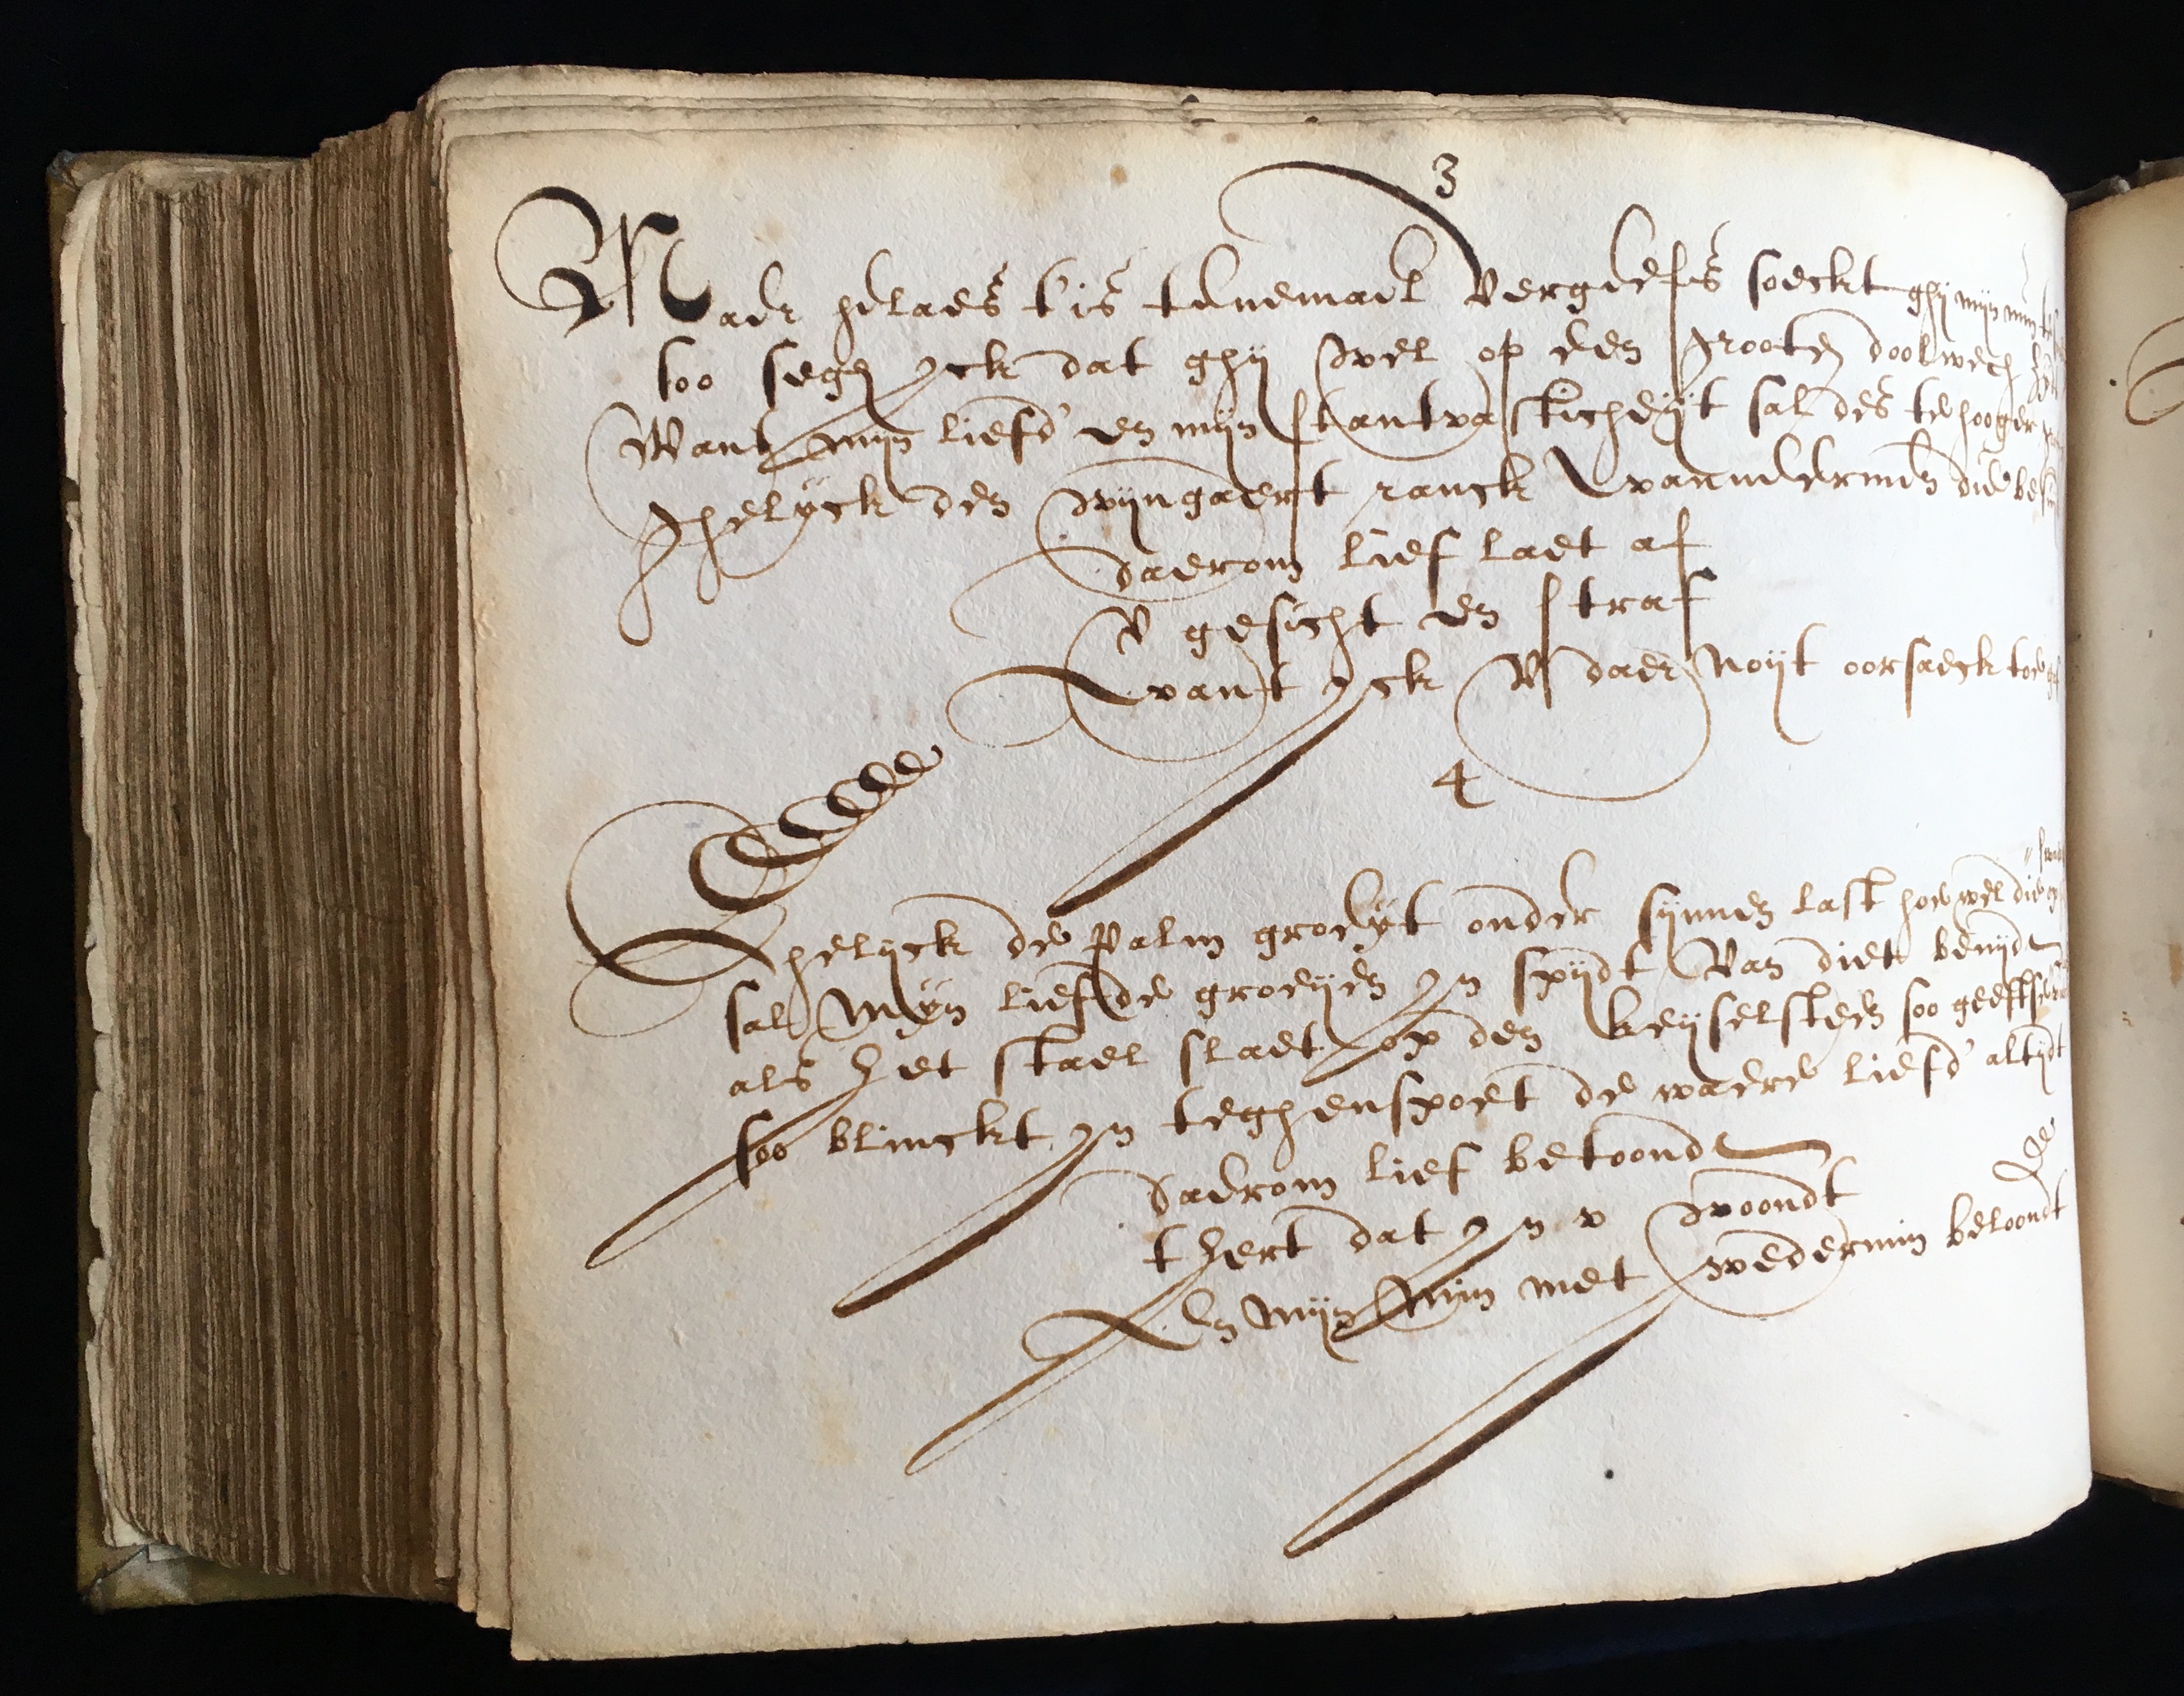 3
Maer helaes t'is tenemael vergeefs soeckt ghij mijn min
soo segh yck dat ghij wel op een grooten doolwech
Want mijn liefd' en mijn stantvasticheijt sal des te hooger
Ghelyck den wijngaert ranck van den die
daerom lief laet af
V gesicht en straf
want yck V daer noijt oorsaeck toe gaf
4
Ghelyck de palm groeyt onder synnen last hoe wel die
sal myn liefde groeijen yn spijdt van diet benijdt
als het stael slaet op den keijselsteen soo geeft
soo blinckt yn teghenspoet de waere liefd' altijdt
Daerom lief betoondt
t hert dat yn v woondt
En mijn min met wedermin beloondt